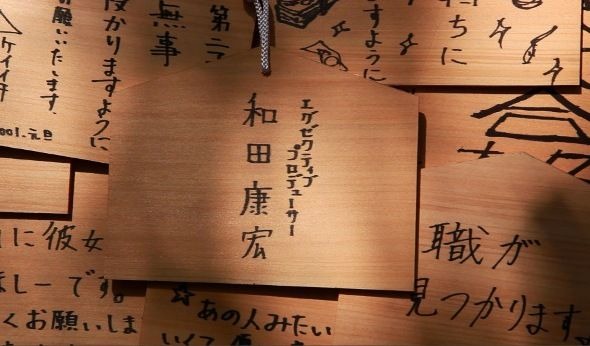 エグゼクティブ
プロデューサー
和田康宏
職が
見つかります
に彼女
ほしーです。
くお願いしま
☆あの人みたい
ますように
たちに
第二
無事
授かりますように
お願いいたします.
ケイイチ
2001.元旦